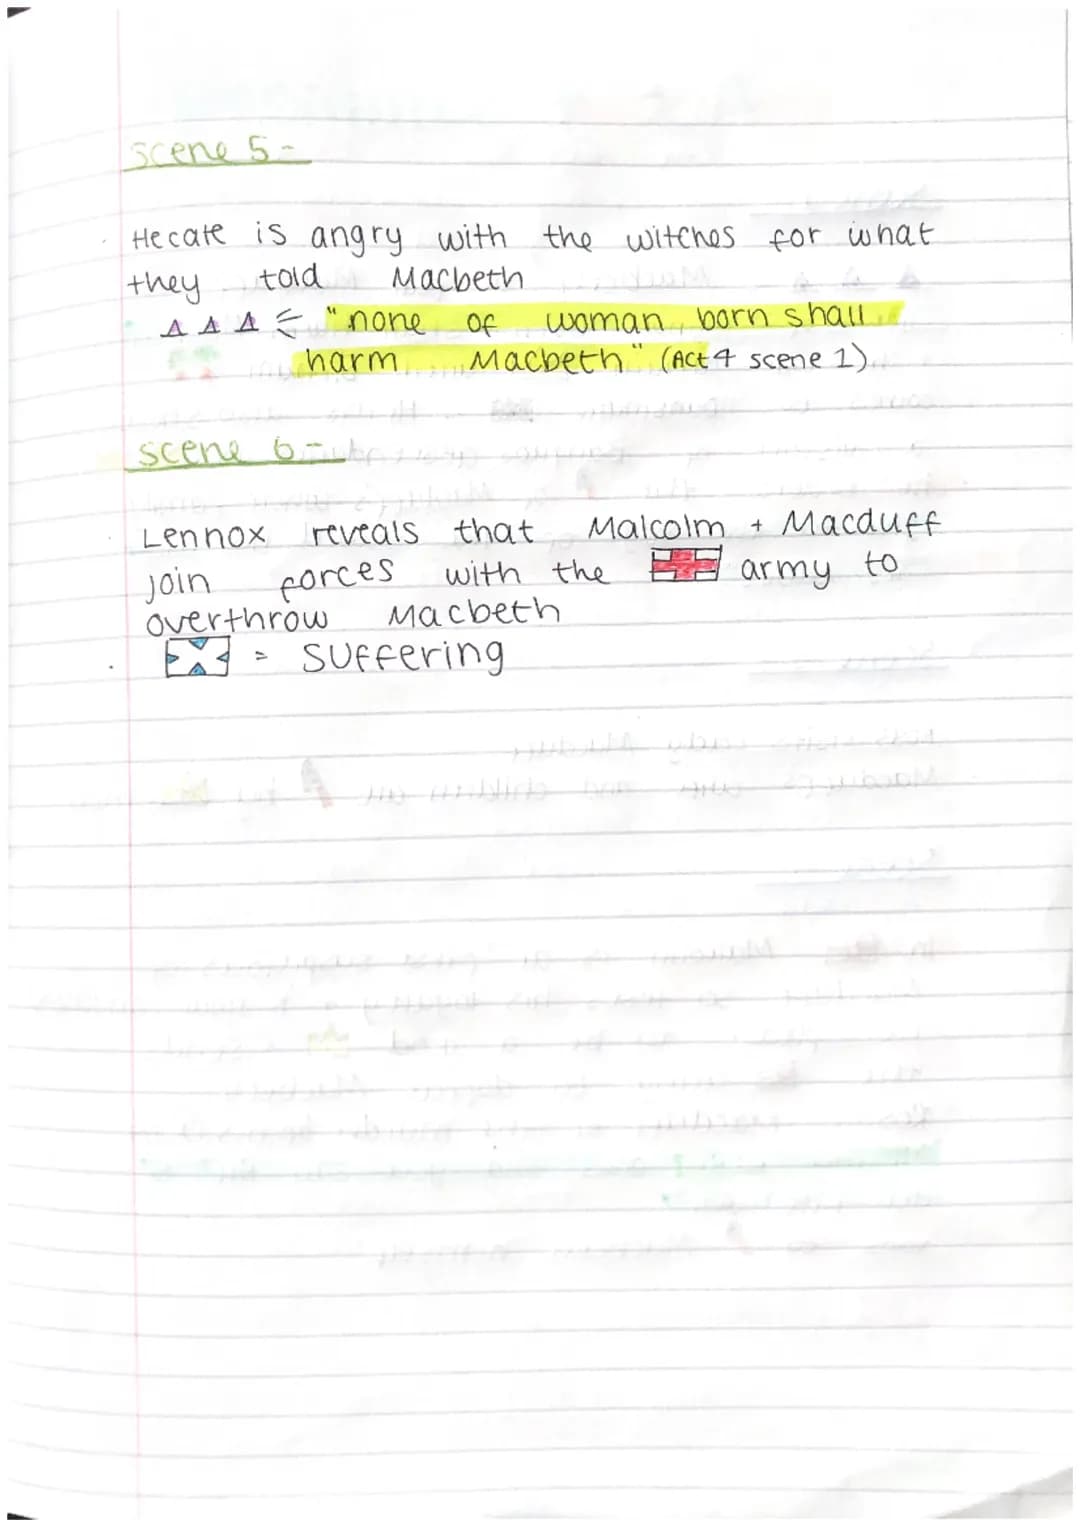 scene 5-
Hecate is angry with the witches for what
they told Macbeth
"none of woman born shall
harm Macbeth" (Act 4 scene 1)
scene 6-
Lennox reveals that Malcolm + Macduff
join forces with the army to
overthrow Macbeth
= suffering